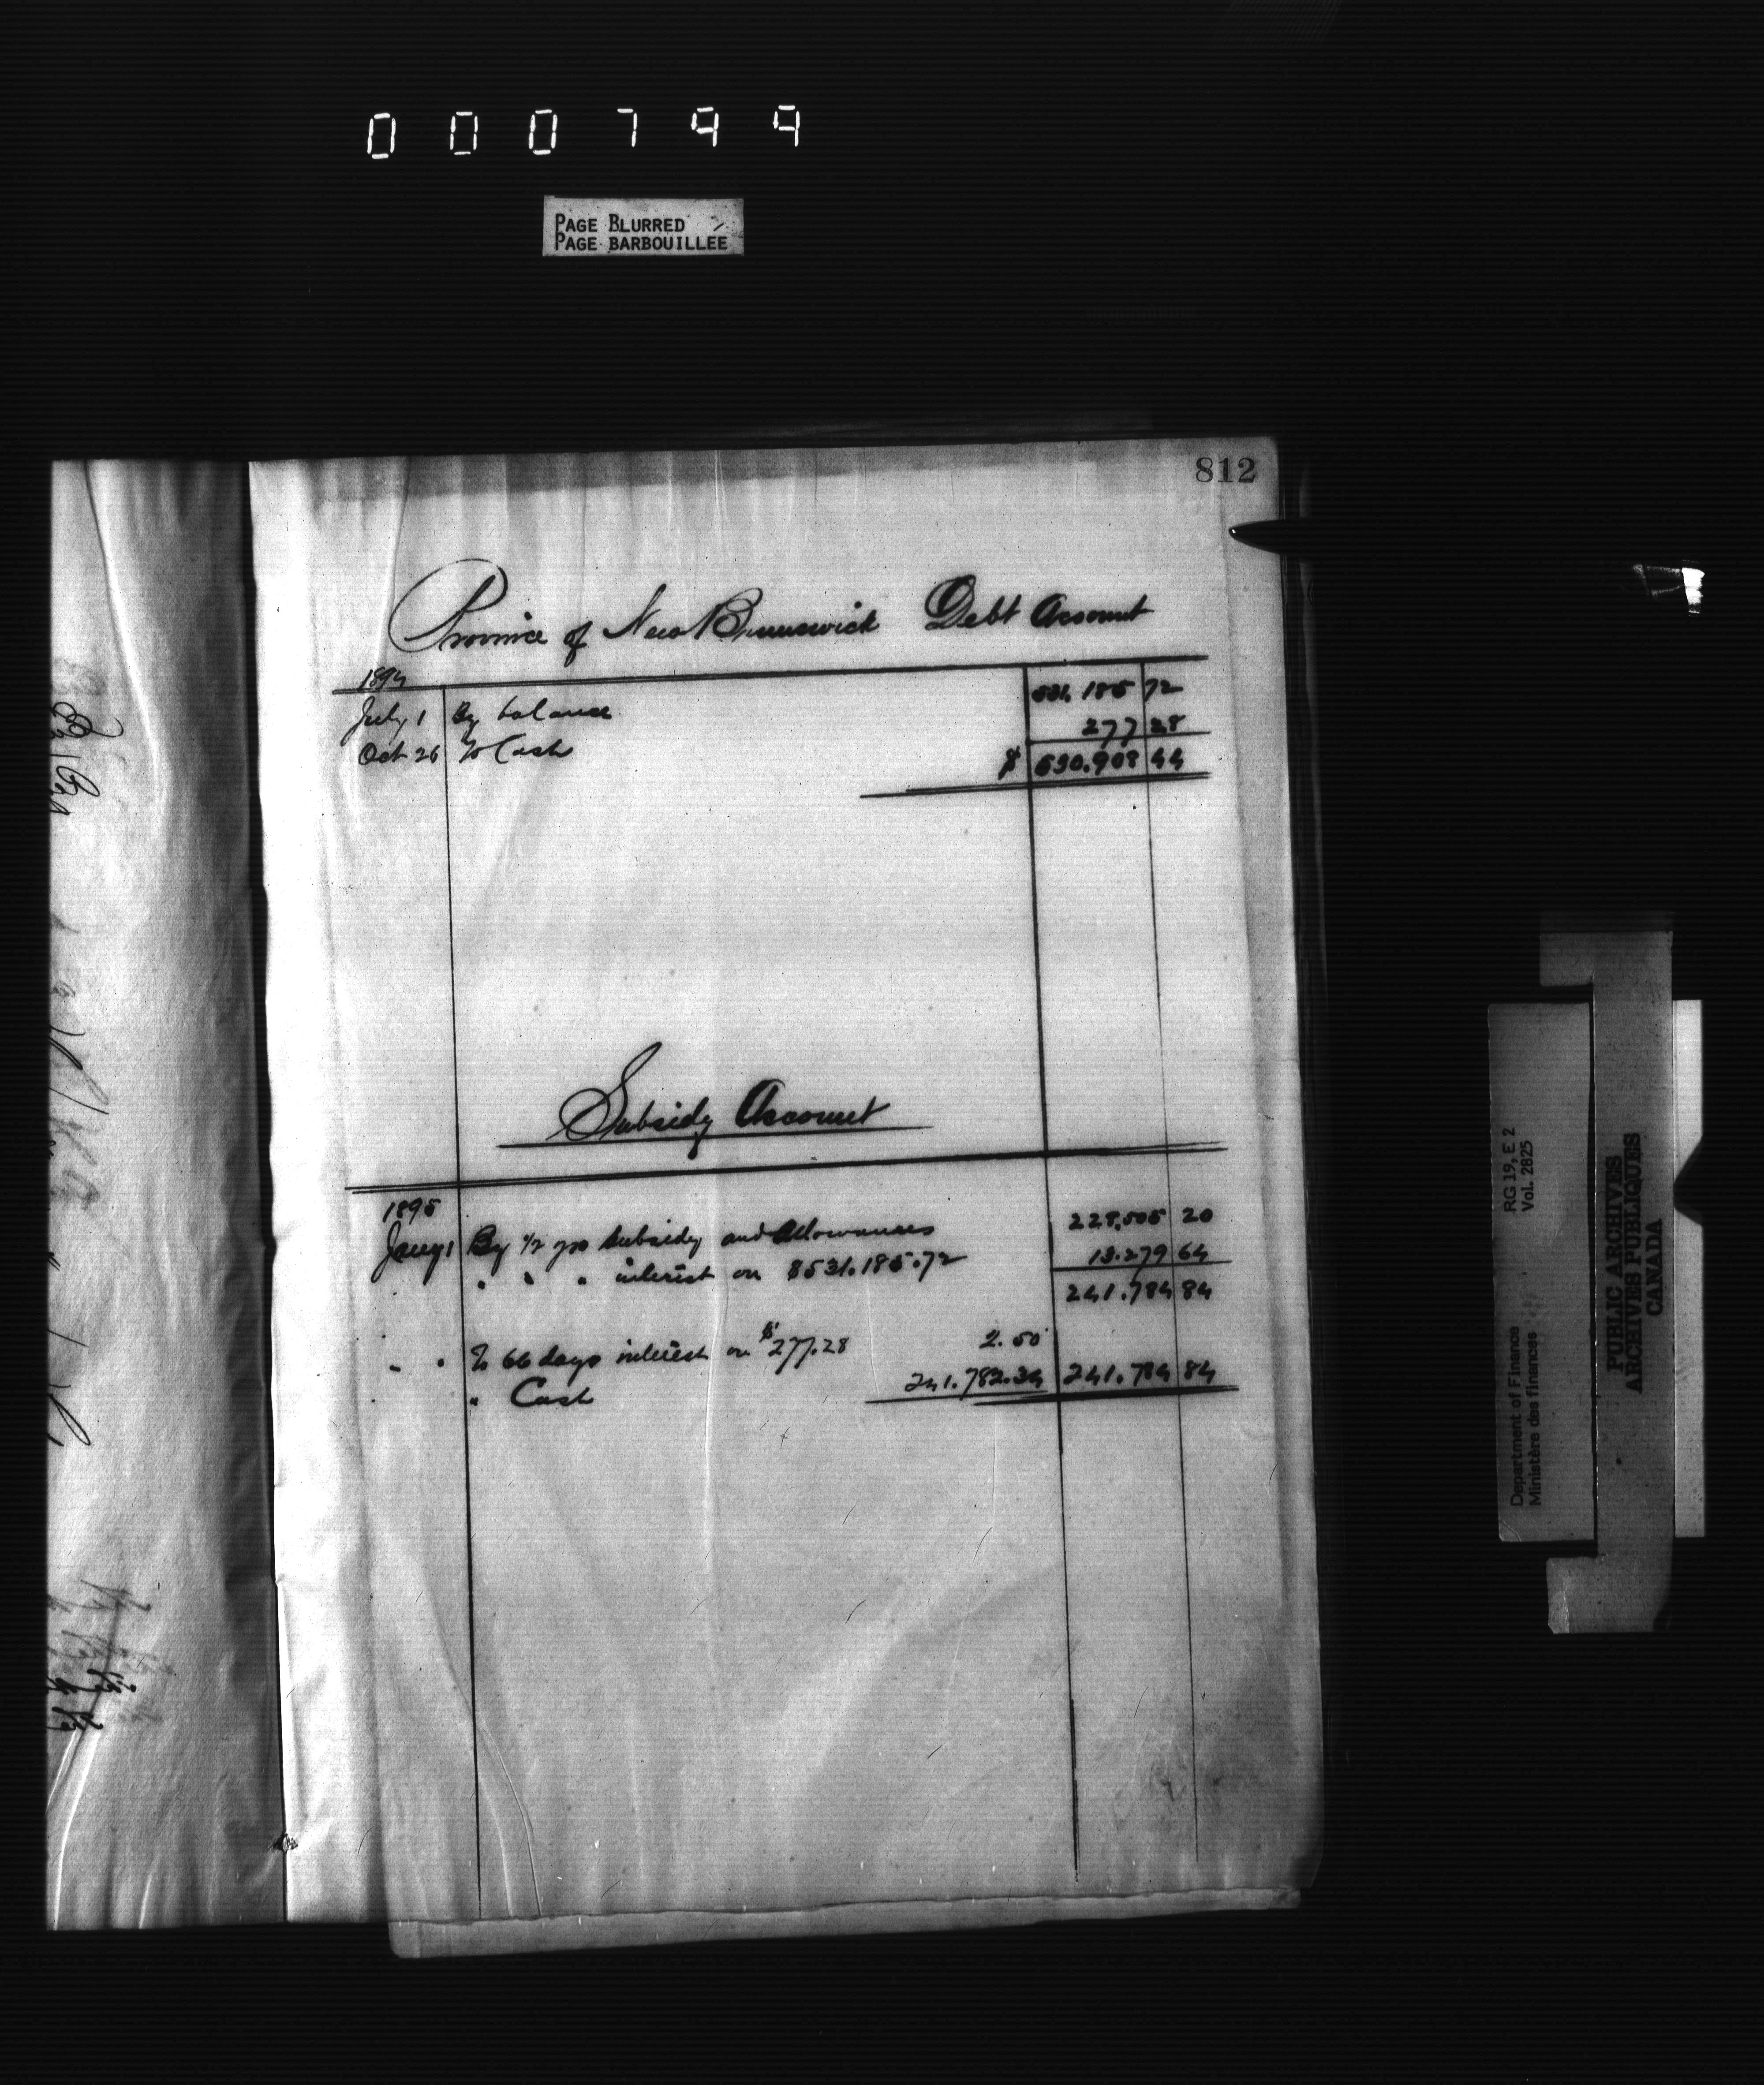 000799
PAGE BLURRED
PAGE BARBOUILLEE
812
Province of New Brunswick Debt Account
1894
July 1 By balance 531.185 72
Oct 26 To Cash 277 28
$ 530.908 44
Subsidy Account
1895
Jany 1 By 1/2 yrs Subsidy and Allowances 228,505 20
" " " interest on $531.185.72 13.279 64
241.784 84
" " To 66 days interest on $277.28 2.50
" Cash 241.782.34 241.784 84
Department of Finance RG 19, E 2
Ministère des finances Vol. 2825
PUBLIC ARCHIVES
ARCHIVES PUBLIQUES
CANADA